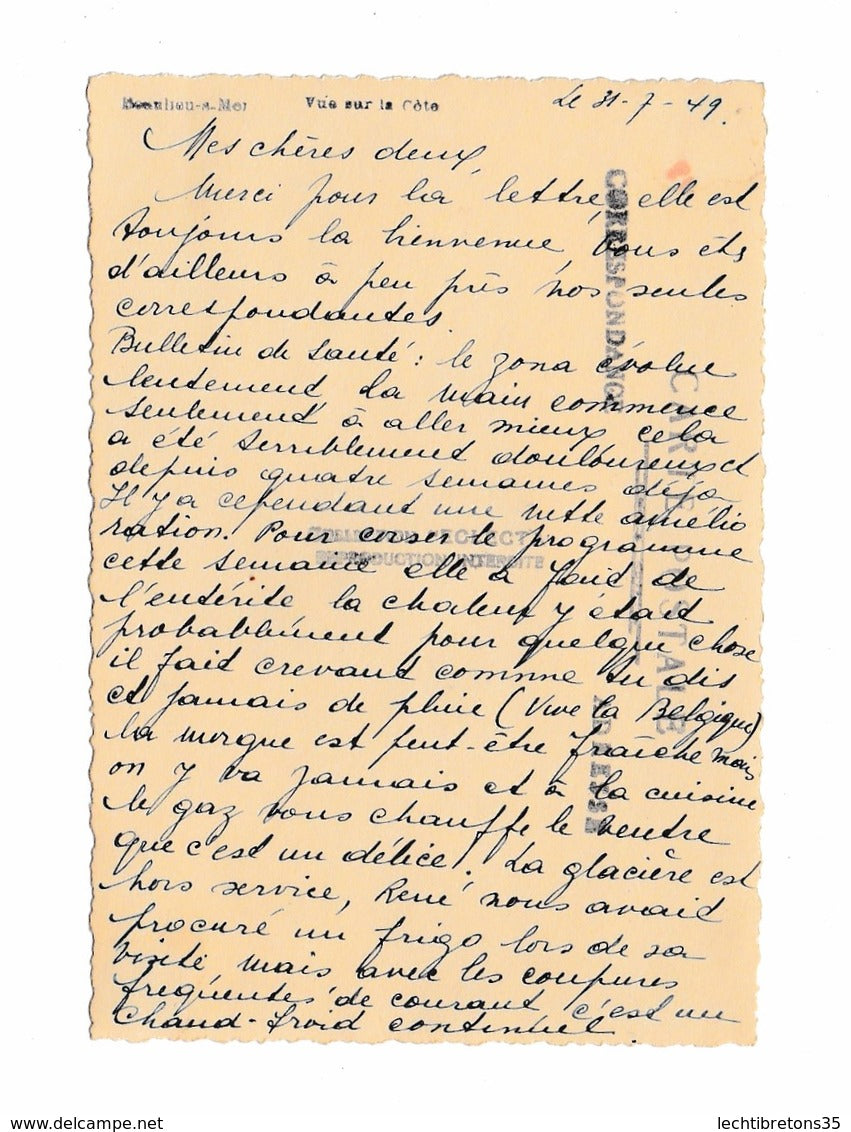 Beaulieu-s-Mer Vue sur la Côte Le 31-7-49.
Mes chères deux,
Merci pour la lettre, elle est
toujours la bienvenue, vous êts
d'ailleurs à peu près nos seules
correspondantes.
Bulletin de santé : le zona évolue
lentement, la main commence
seulement à aller mieux, cela
a été terriblement douloureux et
depuis quatre semaines déjà.
Il y a cependant une nette amélio
ration. Pour corser le programme
cette semaine elle a fait de
l'entérite la chaleur y était
probablement pour quelque chose
il fait crevant comme tu dis
et jamais de pluie (Vive la Belgique)
la morgue est peut-être fraîche mais
on y va jamais et à la cuisine
le gaz vous chauffe le ventre
que c'est un délice. La glacière est
hors service, René nous avait
procuré un frigo lors de sa
visite mais avec les coupures
fréquentes de courant, c'est un
chaud-froid continuel.
CORRESPONDANCE
CARTE POSTALE
ADRESSE
REPRODUCTION INTERDITE
lechtibretons35